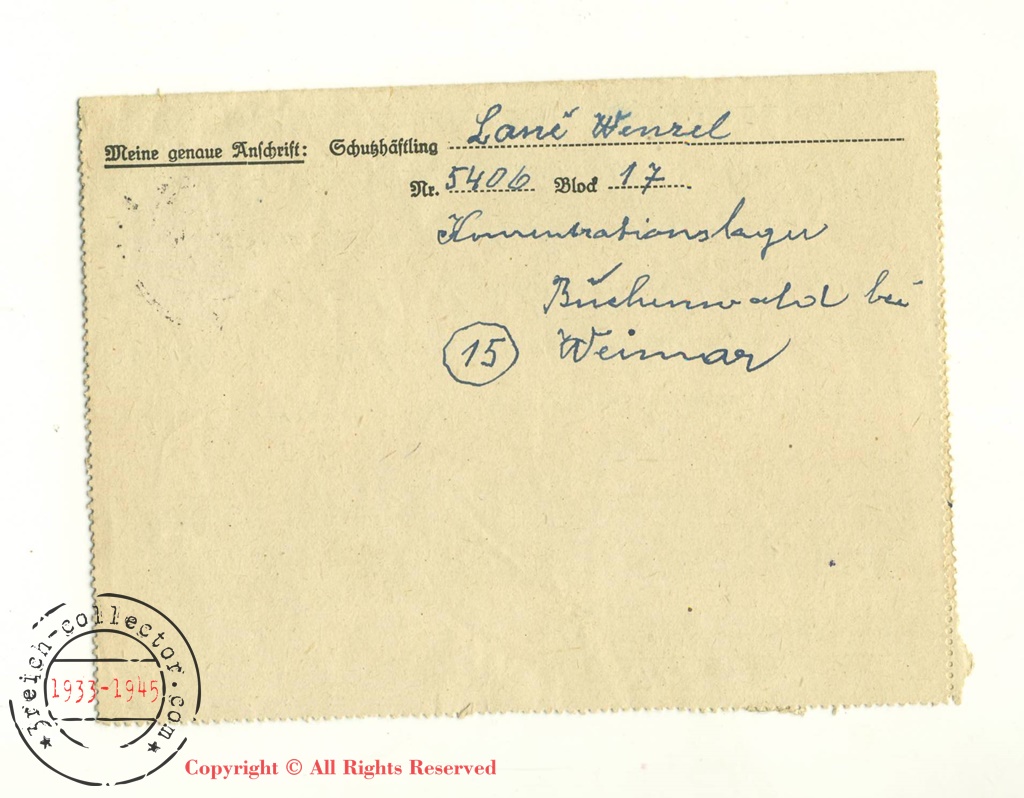 Meine genaue Anschrift: Schutzhäftling Lanč Wenzel
Nr. 5406 Block 17
Konzentrationslager
Buchenwald bei
15 Weimar
*3reich-collector.com*
1933-1945
Copyright © All Rights Reserved